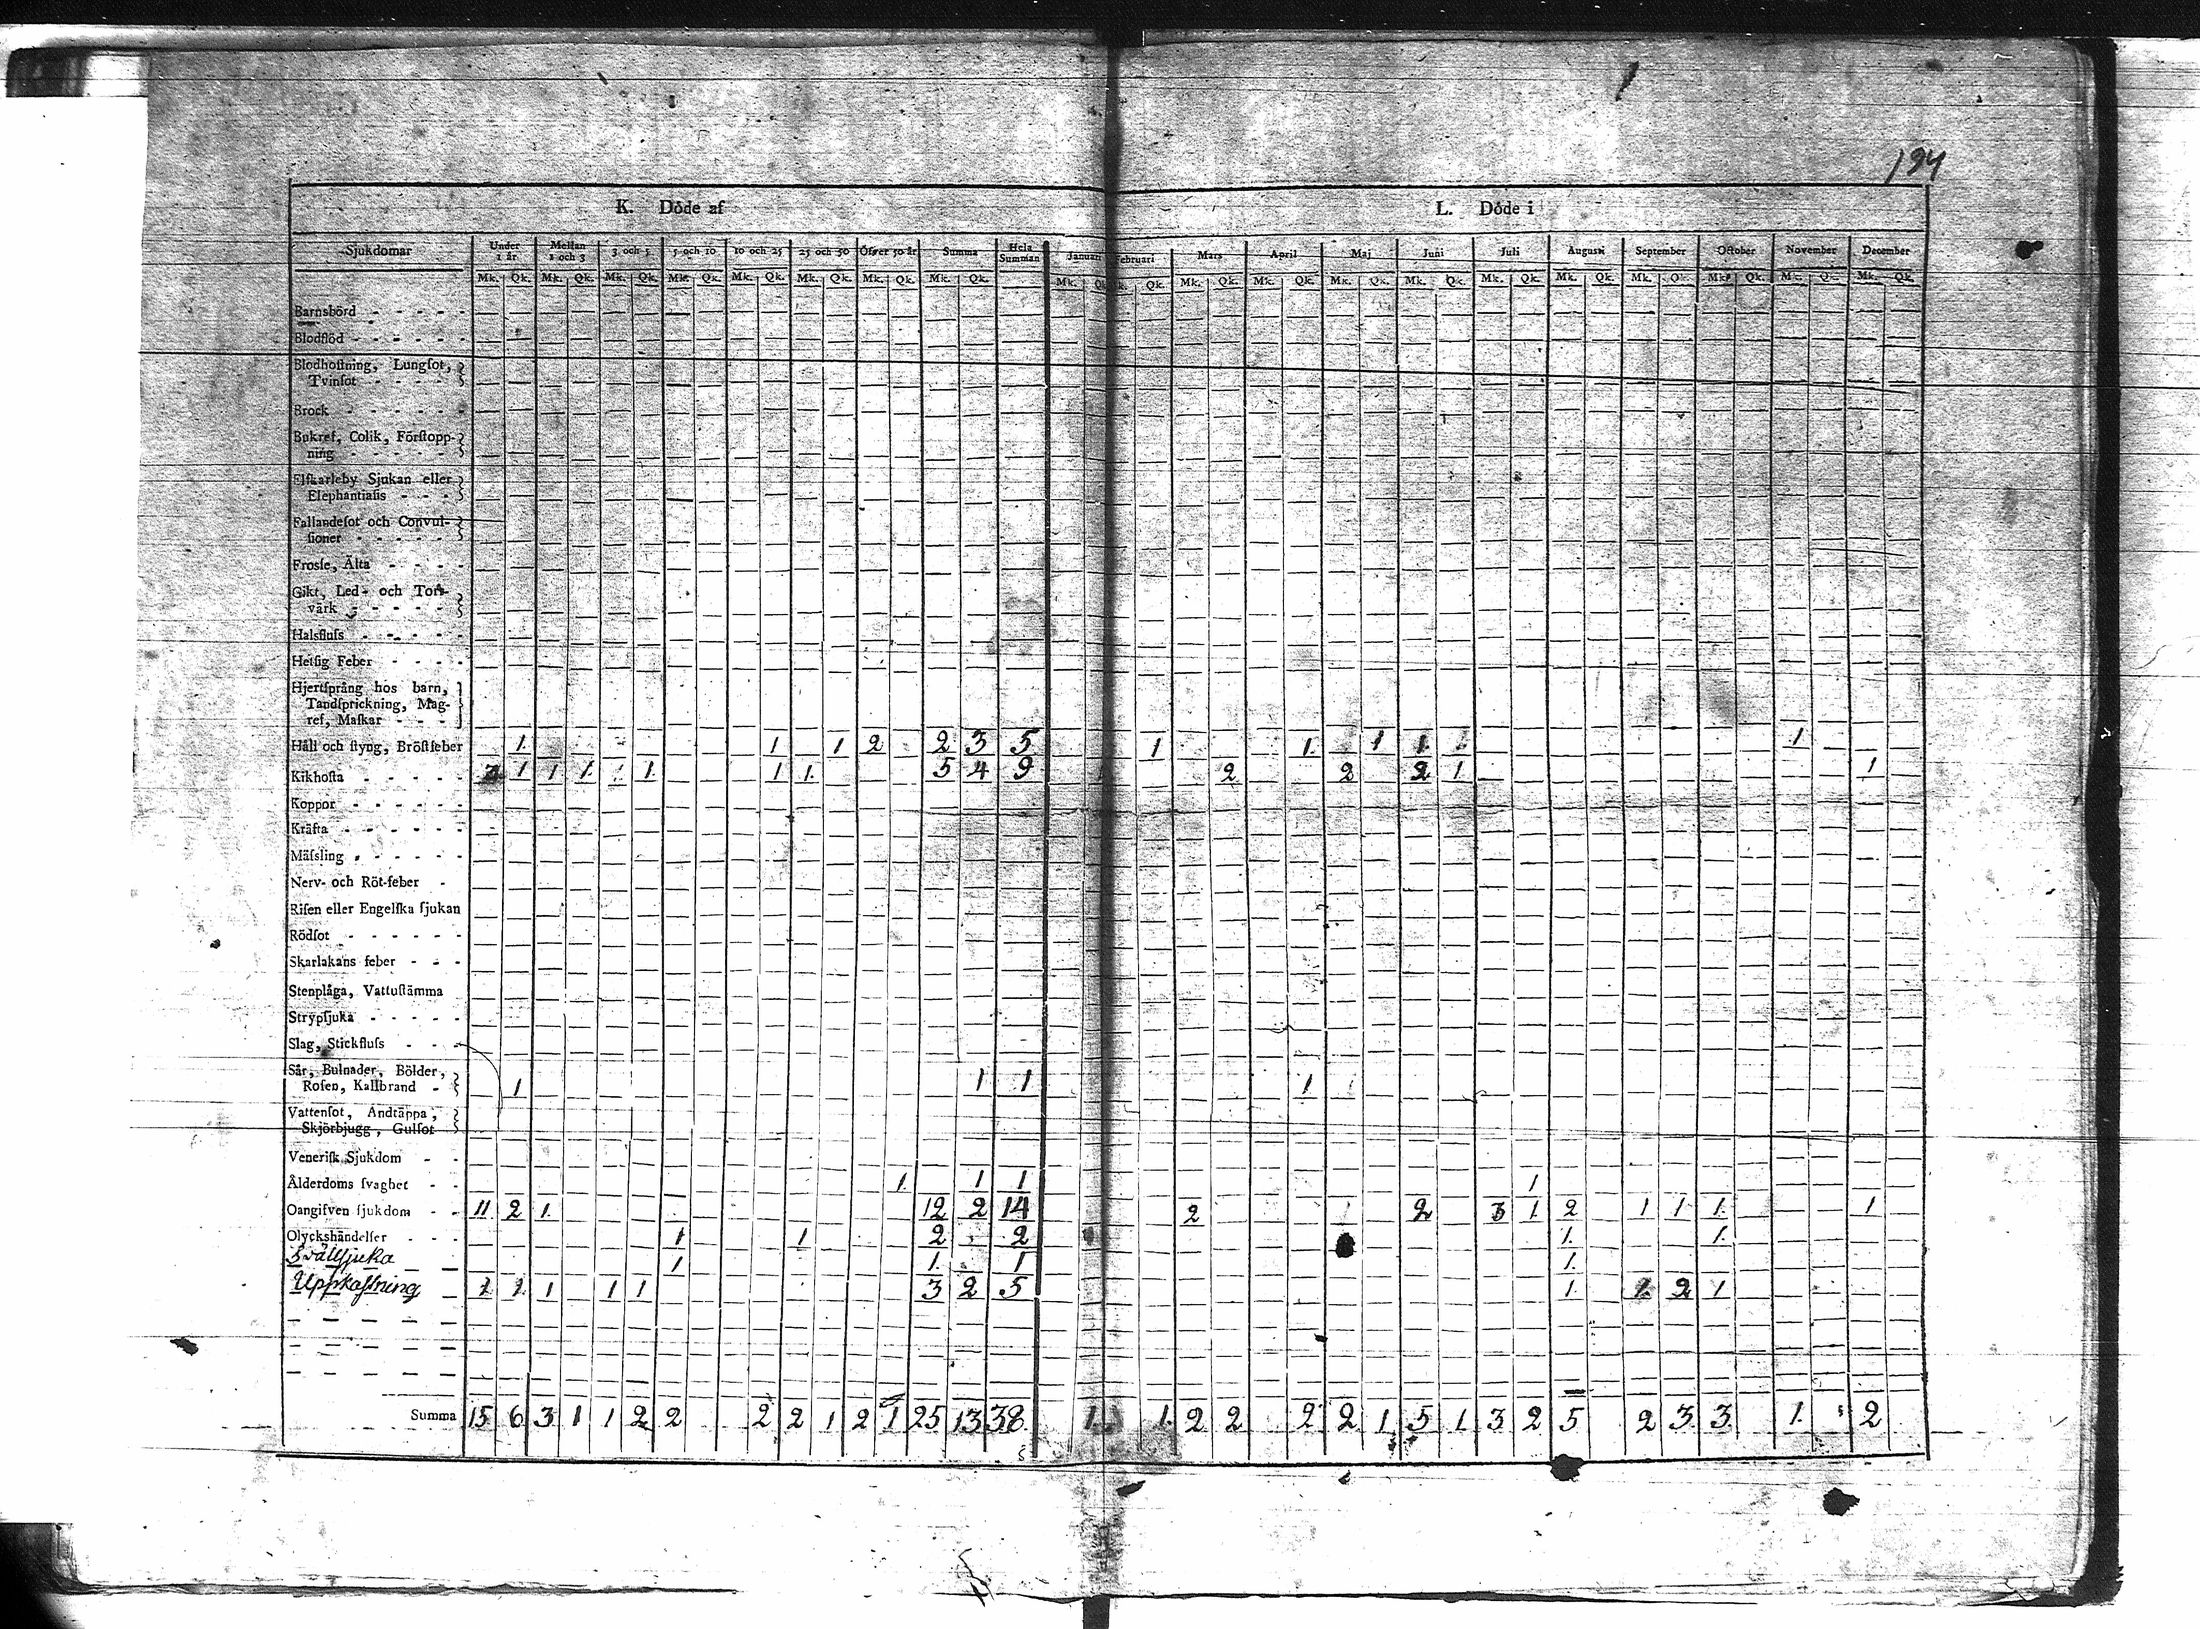 194
K. Döde af L. Döde i
Sjukdomar Under 1 år Mellan 1 och 3 3 och 5 5 och 10 10 och 25 25 och 50 Öfver 50 år Summa Hela Summan Januari Februari Mars April Maj Juni Juli Augusti September October November December
Mk. Qk. Mk. Qk. Mk. Qk. Mk. Qk. Mk. Qk. Mk. Qk. Mk. Qk. Mk. Qk. Mk. Qk. Mk. Qk. Mk. Qk. Mk. Qk. Mk. Qk. Mk. Qk. Mk. Qk. Mk. Qk. Mk. Qk. Mk. Qk. Mk. Qk.
Barnsbörd - - - - -
Blodflöd - - - - -
Blodhoſtning, Lungſot,
Tvinſot - - - -
Brock - - - - -
Bukref, Colik, Förſtopp-
ning - - - - -
Elfkarleby Sjukan eller
Elephantiaſis - - -
Fallandeſot och Convul-
ſioner - - - - -
Froſſe, Älta - - - -
Gikt, Led- och Torr-
värk - - - - -
Halsfluſs - - - - -
Hetſig Feber - - - -
Hjertſprång hos barn,
Tandſprickning, Mag-
ref, Maſkar - - -
Håll och ſtyng, Bröſtfeber 1 1 1 2 2 3 5 1 1 1 1 1
Kikhoſta - - - - - 1 1 1 1 1 1 5 4 9 2 2 2 1 1
Koppor - - - - - -
Kräfta - - - - - -
Mäſsling - - - - -
Nerv- och Röt-feber -
Riſen eller Engelſka ſjukan
Rödſot - - - - - -
Skarlakans feber - - -
Stenplåga, Vattuſtämma
Strypſjuka - - - - -
Slag, Stickfluſs - - -
Sår, Bulnader, Bölder,
Roſen, Kallbrand - 1 1 1 1
Vattenſot, Andtäppa,
Skjörbjugg, Gulſot
Veneriſk Sjukdom - -
Ålderdoms ſvaghet - - 1 1 1 1
Oangifven ſjukdom - - 11 2 1 12 2 14 2 2 3 1 2 1 1 1 1
Olyckshändelſer - - - 1 1 2 2 1 1
Svällsjuka 1 1 1 1
Uppkastning 1 1 1 1 1 3 2 5 1 1 2 1
Summa 15 6 3 1 1 2 2 2 2 1 2 1 25 13 38 1 1 2 2 2 2 1 5 1 3 2 5 2 3 3 1 2